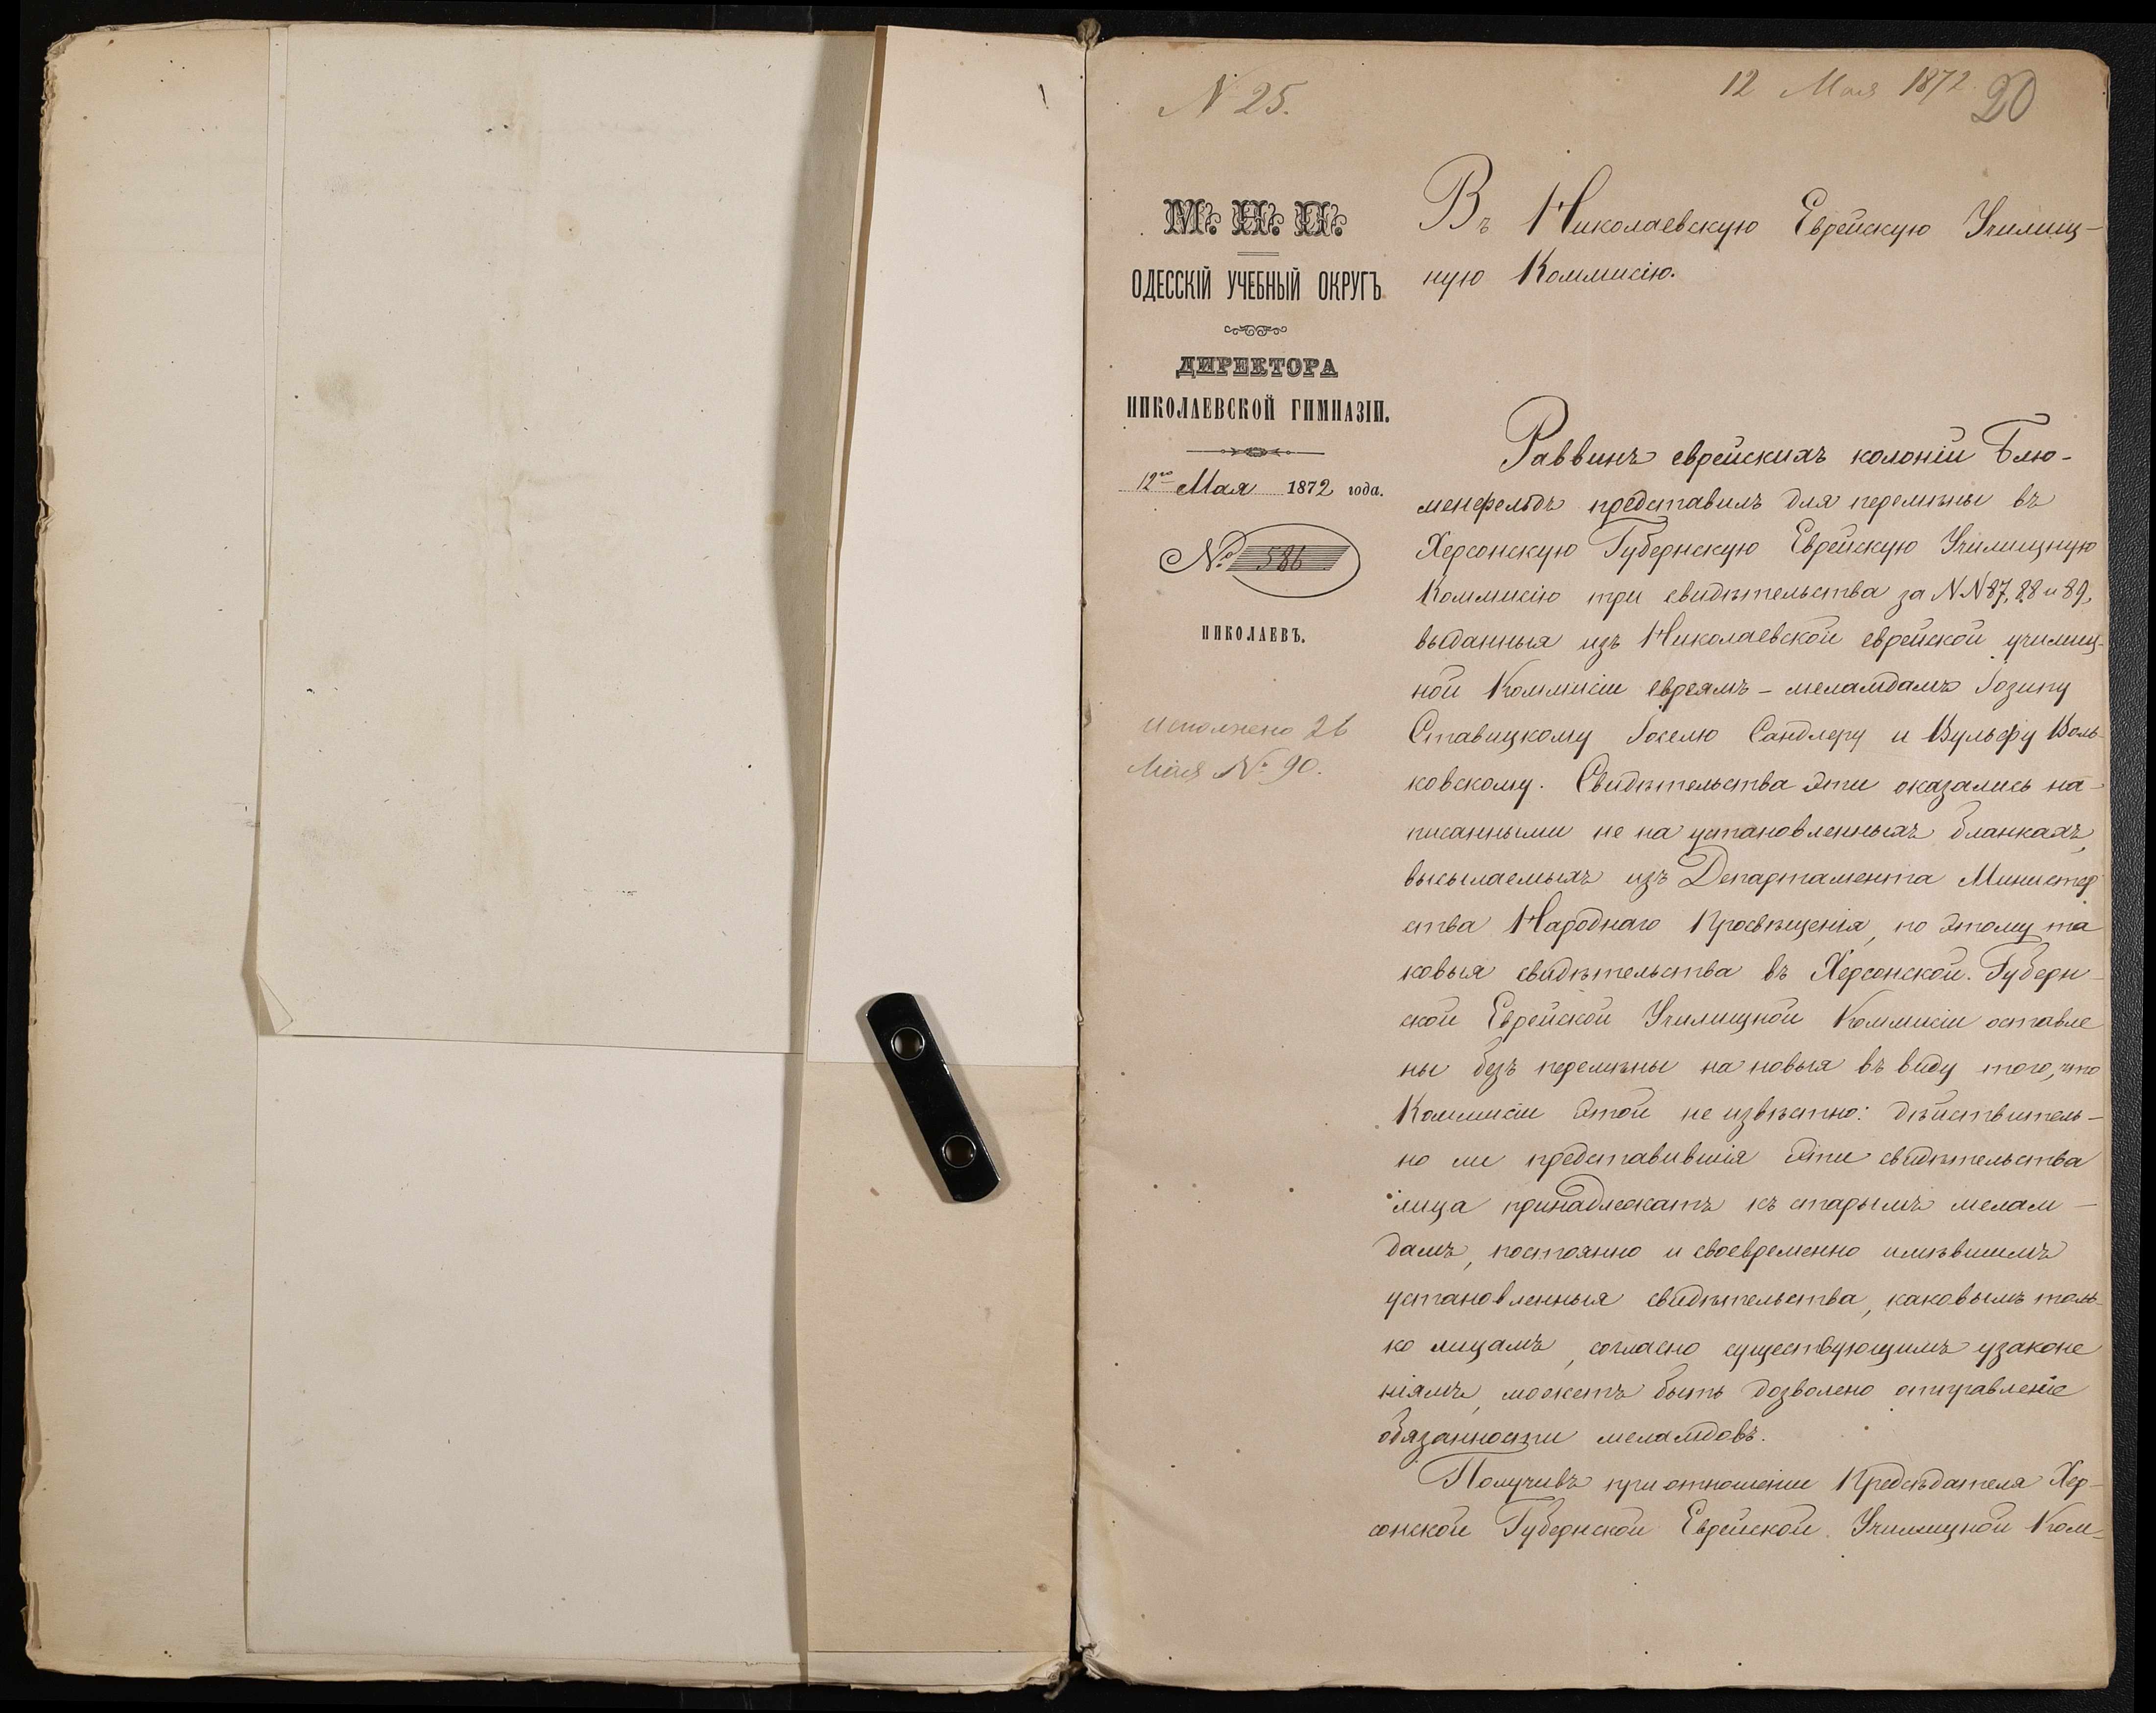 N 25.
12 Мая 1872
20
М. Н. П.
ОДЕССКІЙ УЧЕБНЫЙ ОКРУГЪ
ДИРЕКТОРА
НИКОЛАЕВСКОЙ ГИМНАЗІИ.
12го Мая 1872 года.
№ 586
НИКОЛАЕВЪ.
исполнено 26
Мая № 90.
Въ Николаевскую Еврейскую Училищ-
ную Коммисію.
Раввинъ еврейскихъ колоній Блю-
менфельдъ представилъ для перемѣны въ
Херсонскую Губернскую Еврейскую Училищную
Коммисію три свидѣтельства за NN 87, 88 и 89,
выданныя изъ Николаевской еврейской училищ-
ной Коммисіи евреямъ - меламдамъ
Ставицкому Іоселю Сандлеру и Вульфу Воль-
ковскому. Свидѣтельства эти оказались на-
писанными не на установленныхъ бланкахъ,
высылаемыхъ изъ Департамента Министер
ства Народнаго Просвѣщенія, по этому та
ковыя свидѣтельства въ Херсонской Губерн-
ской Еврейской Училищной Коммисіи оставле
ны безъ перемѣны на новыя въ виду того, что
Коммисіи этой не извѣстно: дѣйствитель-
но ли представившія эти свидѣтельства
лица принадлежатъ къ старымъ мелам-
дамъ, постоянно и своевременно имѣвшимъ
установленныя свидѣтельства, каковымъ толь-
ко лицамъ, согласно существующимъ узаконе
ніямъ, можетъ быть дозволено отправленіе
обязанности меламдовъ.
Получивъ при отношеніи Предсѣдателя Хер-
сонской Губернской Еврейской Училищной Ком-